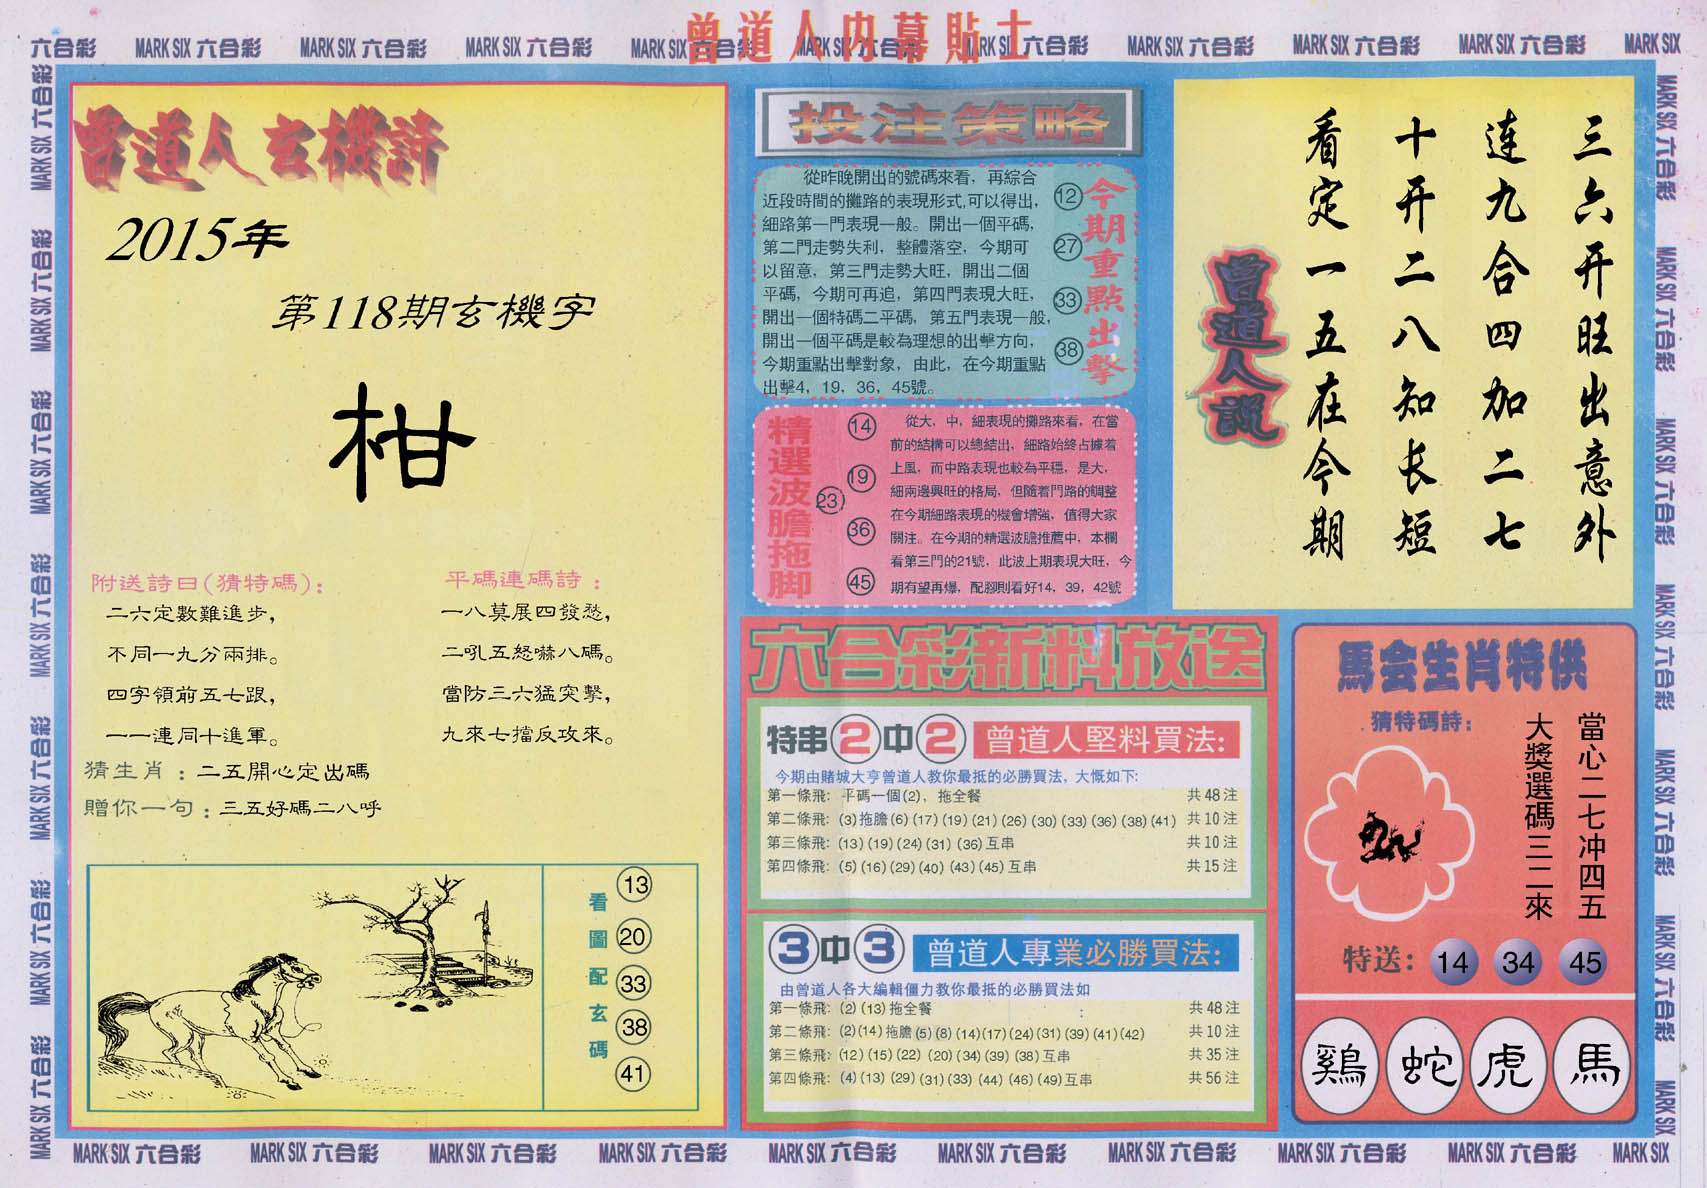 曾道人内幕貼士
六合彩 MARK SIX 六合彩 MARK SIX 六合彩 MARK SIX 六合彩 MARK SIX 六合彩 MARK SIX 六合彩 MARK SIX 六合彩 MARK SIX 六合彩 MARK SIX 六合彩 MARK SIX 六合彩 MARK SIX
曾道人玄機詩
2015年
第118期玄機字
柑
附送詩曰(猜特碼):
二六定數難進步,
不同一九分兩排。
四字領前五七跟,
一一連同十進軍。
平碼連碼詩:
一八莫展四發愁,
二吼五怒嚇八碼。
當防三六猛突擊,
九來七擋反攻來。
猜生肖:二五開心定出碼
贈你一句:三五好碼二八呼
看圖配玄碼
13
20
33
38
41
投注策略
從昨晚開出的號碼來看，再綜合
近段時間的攤路的表現形式,可以得出，
細路第一門表現一般。開出一個平碼，
第二門走勢失利，整體落空，今期可
以留意，第三門走勢大旺，開出二個
平碼，今期可再追，第四門表現大旺，
開出一個特碼二平碼，第五門表現一般，
開出一個平碼是較為理想的出擊方向，
今期重點出擊對象，由此，在今期重點
出擊4，19，36，45號。
12
27
33
38
今期重點出擊
精選波膽拖脚
14
19
23
36
45
從大，中，細表現的攤路來看，在當
前的結構可以總結出，細路始終占據着
上風，而中路表現也較為平穩，是大，
細兩邊興旺的格局，但隨着門路的調整
在今期細路表現的機會增強，值得大家
關注。在今期的精選波膽推薦中，本欄
看第三門的21號，此波上期表現大旺，今
期有望再爆，配腳則看好14，39，42號
六合彩新料放送
特串2中2 曾道人堅料買法:
今期由賭城大亨曾道人教你最抵的必勝買法，大慨如下:
第一條飛: 平碼一個(2)，拖全餐 共48注
第二條飛: (3)拖膽(6)(17)(19)(21)(26)(30)(33)(36)(38)(41) 共10注
第三條飛: (13)(19)(24)(31)(36)互串 共10注
第四條飛: (5)(16)(29)(40)(43)(45)互串 共15注
3中3 曾道人專業必勝買法:
由曾道人各大編輯僵力教你最抵的必勝買法如
第一條飛: (2)(13)拖全餐 共48注
第二條飛: (2)(14)拖膽(5)(8)(14)(17)(24)(31)(39)(41)(42) 共10注
第三條飛: (12)(15)(22)(20)(34)(39)(38)互串 共35注
第四條飛: (4)(13)(29)(31)(33)(44)(46)(49)互串 共56注
三六开旺出意外
连九合四加二七
十开二八知长短
看定一五在今期
曾道人説
馬会生肖特供
猜特碼詩:
當心二七冲四五
大獎選碼三二來
特送: 14 34 45
鷄 蛇 虎 馬
MARK SIX 六合彩 MARK SIX 六合彩 MARK SIX 六合彩 MARK SIX 六合彩 MARK SIX 六合彩 MARK SIX 六合彩 MARK SIX 六合彩 MARK SIX 六合彩 MARK SIX 六合彩 MARK SIX